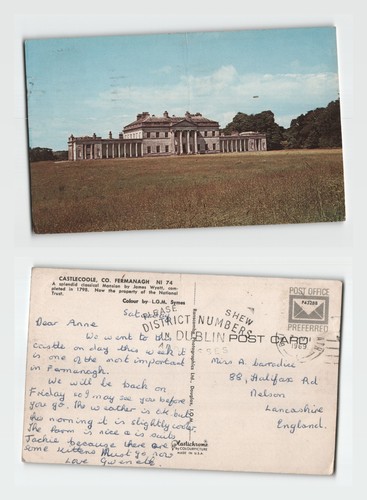 CASTLECOOLE, CO. FERMANAGH NI 74
A splendid classical Mansion by James Wyatt, com-
pleted in 1798. Now the property of the National
Trust.
Colour by L.G.M. Symes
Sat
Dear Anne
We went to this
castle on day this week it
is one of the most important
in Fermanagh.
We will be back on
Friday so I may see you before
you go. The weather is O.K. but
this morning it is slightly cooler.
The Farm is nice & is suits
Jackie because there are
some kittens Must go now
Love Gweneth.
PLEASE SHEW
DISTRICT NUMBERS
DUBLIN
1969
POST CARD
POST OFFICE
PREFERRED
Miss A.
88, Halifax Rd
Nelson
Lancashire
England.
Plastichrome
by COLOURPICTURE
MADE IN U.S.A.